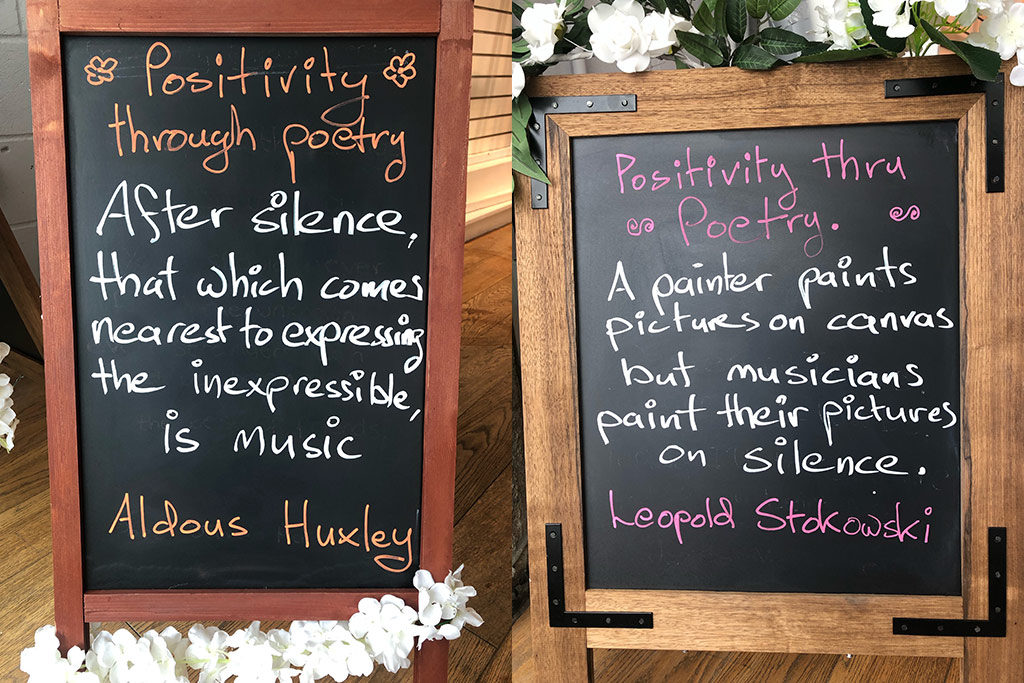 Positivity
through poetry
After silence,
that which comes
nearest to expressing
the inexpressible,
is music
Aldous Huxley
Positivity thru
Poetry.
A painter paints
pictures on canvas
but musicians
paint their pictures
on silence.
Leopold Stokowski